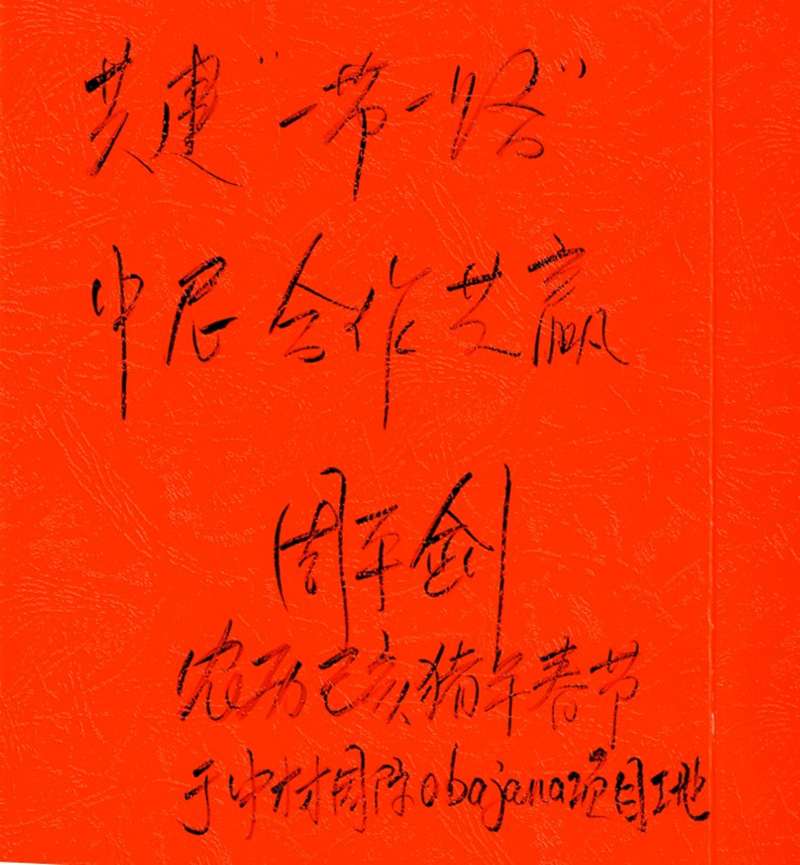 共建“一带一路”
中尼合作共赢
周平剑
农历己亥猪年春节
于中材国际obajana项目工地